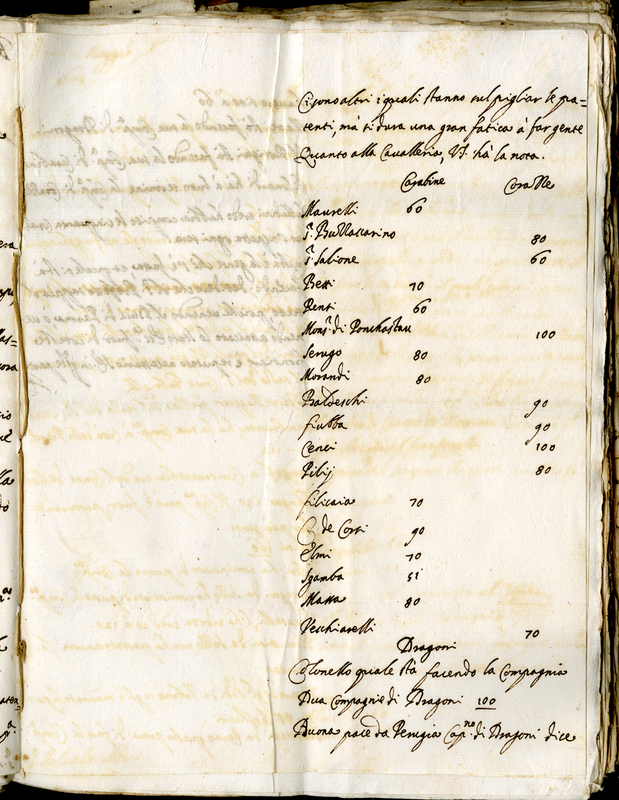 Ci sono altri i quali stanno sul pigliar le pa=
tenti, mà ti dura una gran fatica à far gente
Quanto alla Cavalleria, V.S. hà la nota.
Carabine Corazze
Maurelli 60
S.r Bullaccarino 80
S.r Salione 60
Betti 70
Renti 60
Mons.r di Ponchastau 100
Serugo 80
Morandi 80
Baldeschi 90
fiubba 90
Cenci 100
Pilij 80
filicaia 70
C. de Corti 90
Elmi 70
Sgamba 51
Massa 80
Vecchiarelli 70
Dragoni
Colonello quale stà facendo la Compagnia
Dua Compagnie di Dragoni 100
Buona pace da Perugia Cap.no di Dragoni dice